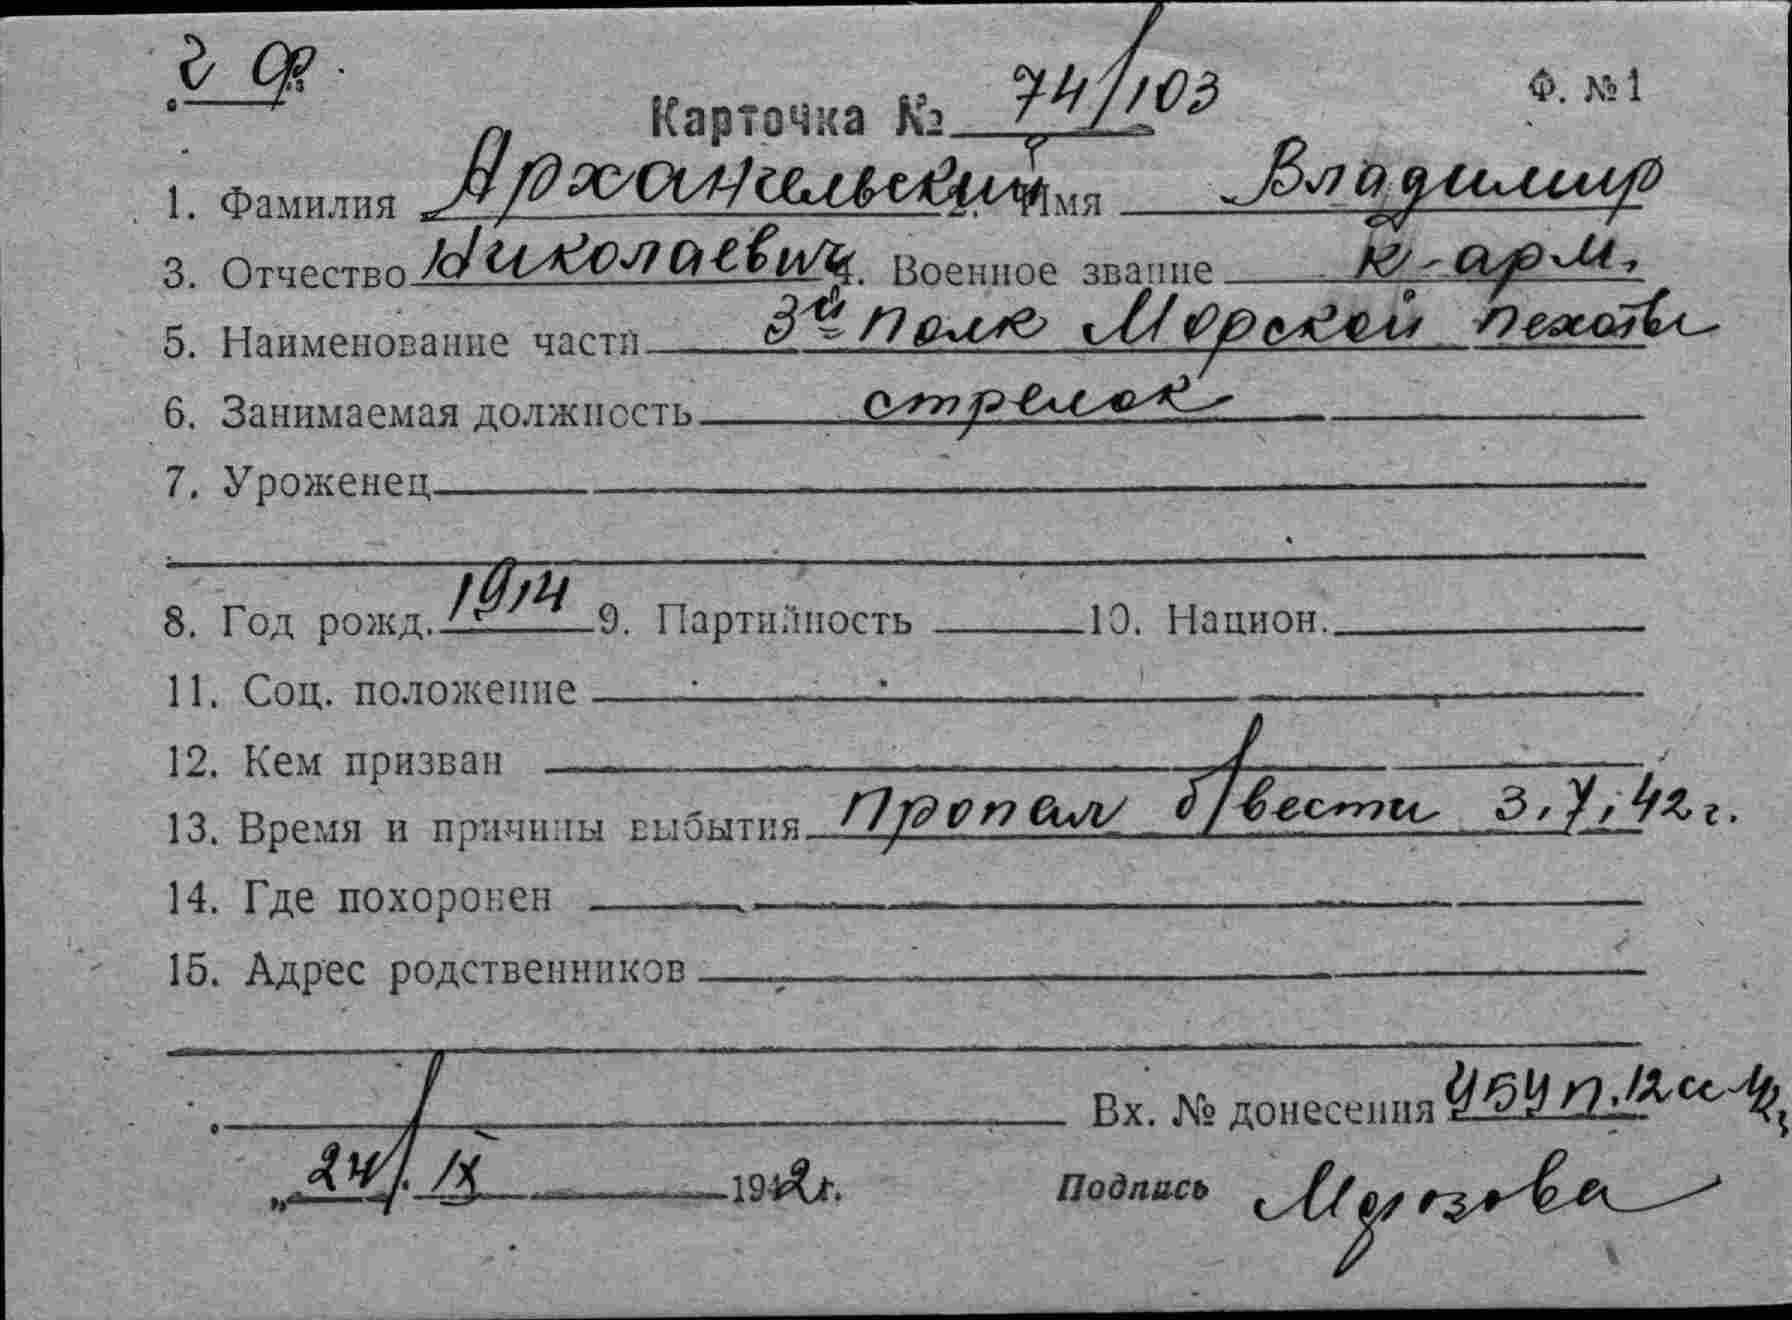 Ф. № 1
Карточка № 74/103
1. Фамилия Архангельский 2. Имя Владимир
3. Отчество Николаевич 4. Военное звание к-арм.
5. Наименование части 3й полк Морской пехоты
6. Занимаемая должность стрелок
7. Уроженец
8. Год рожд. 1914 9. Партийность 10. Национ.
11. Соц. положение
12. Кем призван
13. Время и причины выбытия Пропал б/вести 3.7.42 г.
14. Где похоронен
15. Адрес родственников
Вх. № донесения
„24/. IX 1942 г. Подпись Морозова